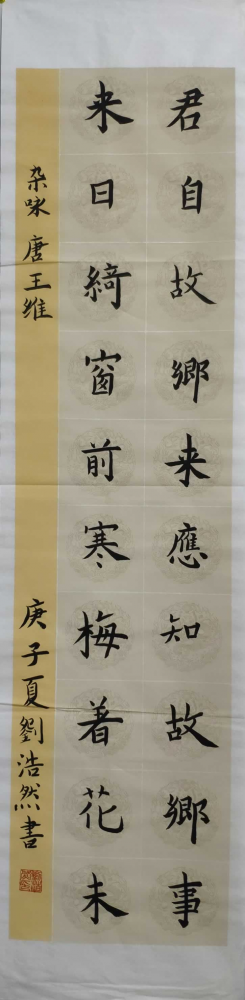 君自故鄉来應知故鄉事
来日綺窗前寒梅着花未
杂咏 唐王维
庚子夏劉浩然書